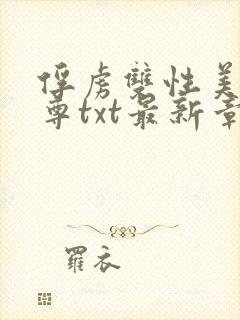 俘虏双性美
尊txt最新章
羅衣